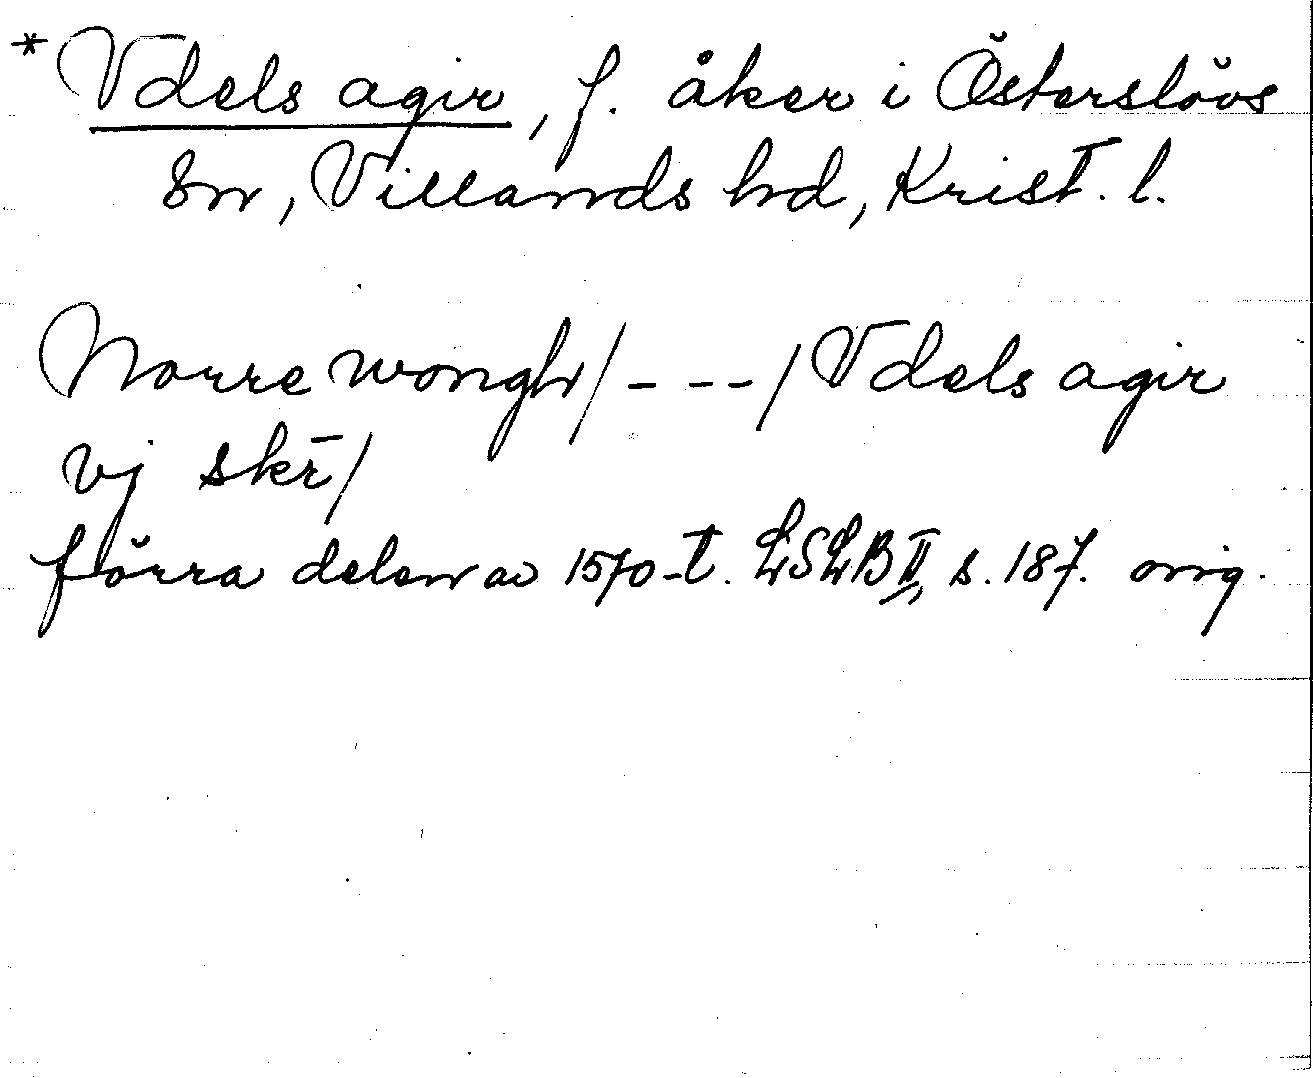 *Vdels agir, f. åker i Österslövs
sn, Villands hd, Krist. l.
Norre wongh/ - - - / Vdels agir
vj skr̄/
förra delen av 1570-t. LSLB II, s. 187. orig.